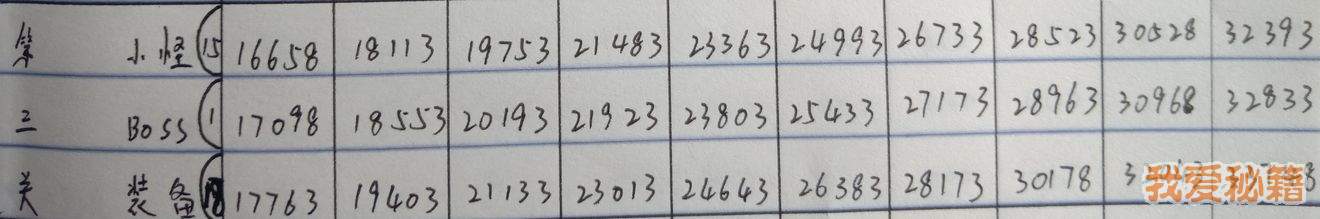 第 小怪(15 16658 18113 19753 21483 23363 24993 26733 28523 30528 32393
三 Boss(1 17098 18553 20193 21923 23803 25433 27173 28963 30968 32833
关 装备(18 17763 19403 21133 23013 24643 26383 28173 30178
我爱秘籍